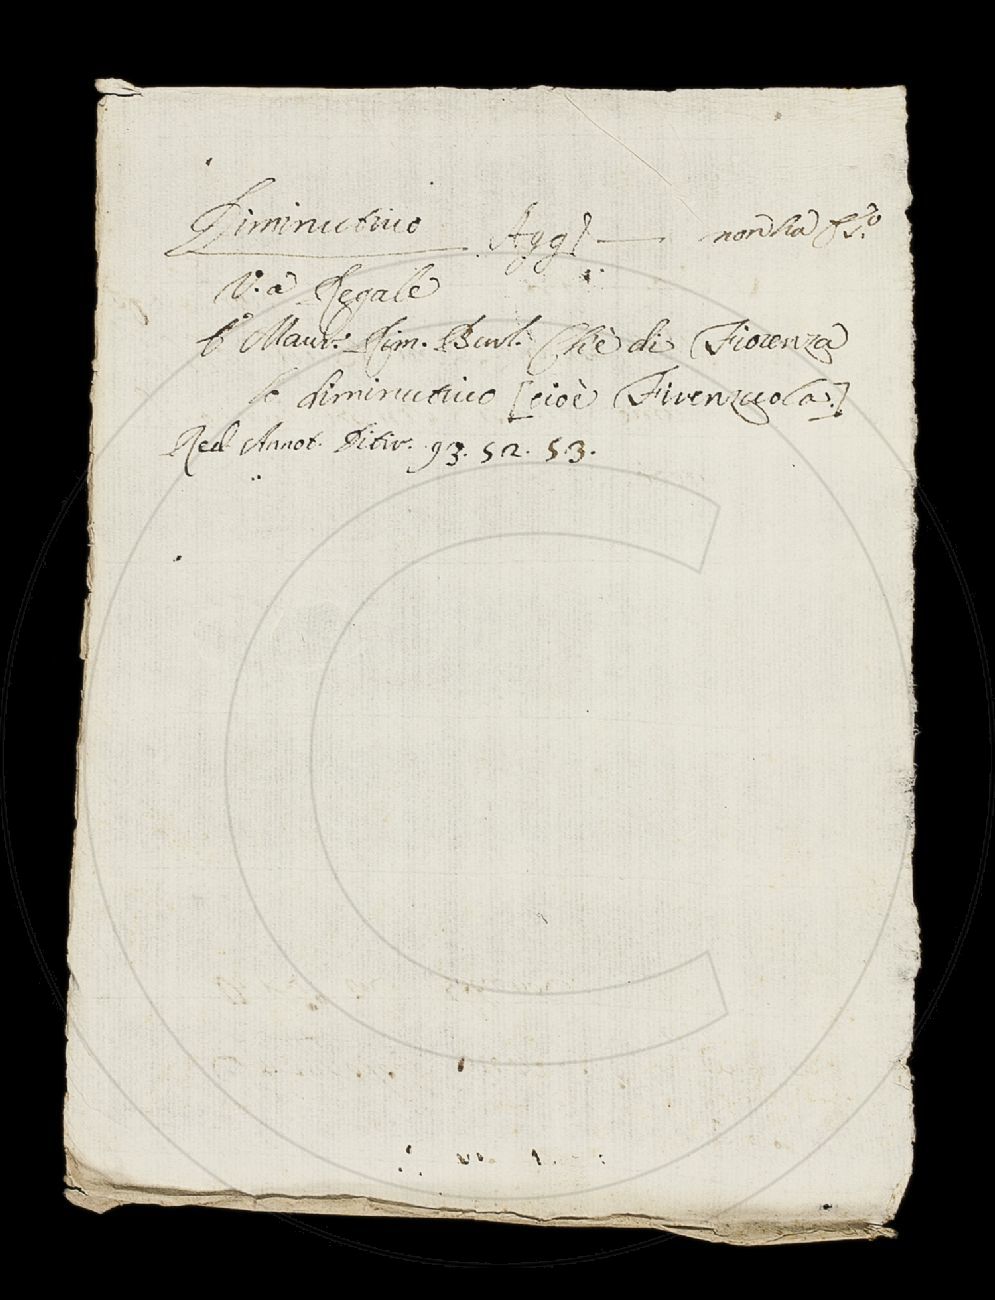 Diminutivo Agg. — non ha Es.º
V. a Regale
b Maur. Rim. Burl. Che è di Fiorenza
Lo diminutivo [cioè Firenzuola.]
Red. Annot. Ditir. 93. 52. 53.